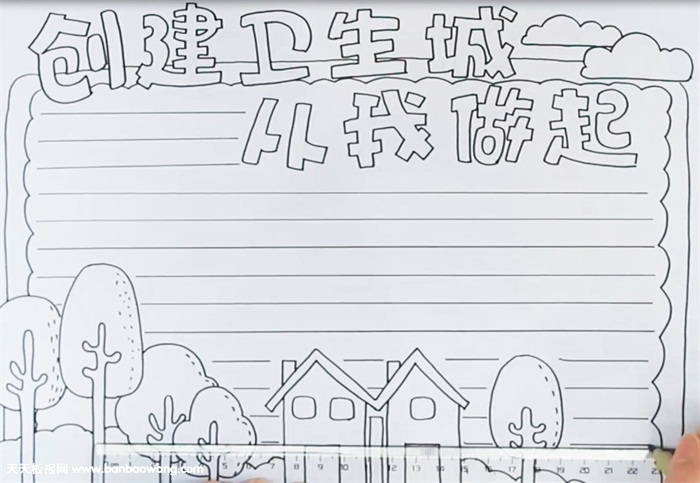 创建卫生城
从我做起
5 7 8 9 10 11 12 13 14 15 16 17 18 19 20 21 22 23
天天板报网 www.banbaowang.com